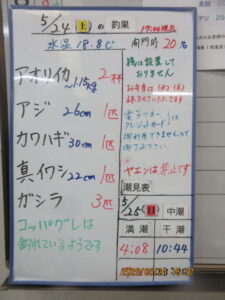 5/24(土)の釣果
19:00現在
水温 18.8℃
南門時 20名
アオリイカ ~1.15kg 2杯
アジ 26cm 1匹
カワハギ 30cm 1匹
真イワシ 22cm 1匹
ガシラ 3匹
コッパグレは
釣れているようです
橋に設置して
おりません
電子マネー
クレジットカード
御利用できませんので
御了承下さい。
ヤエンは禁止です
潮見表
5/25(日) 中潮
満潮 干潮
4:08 10:44